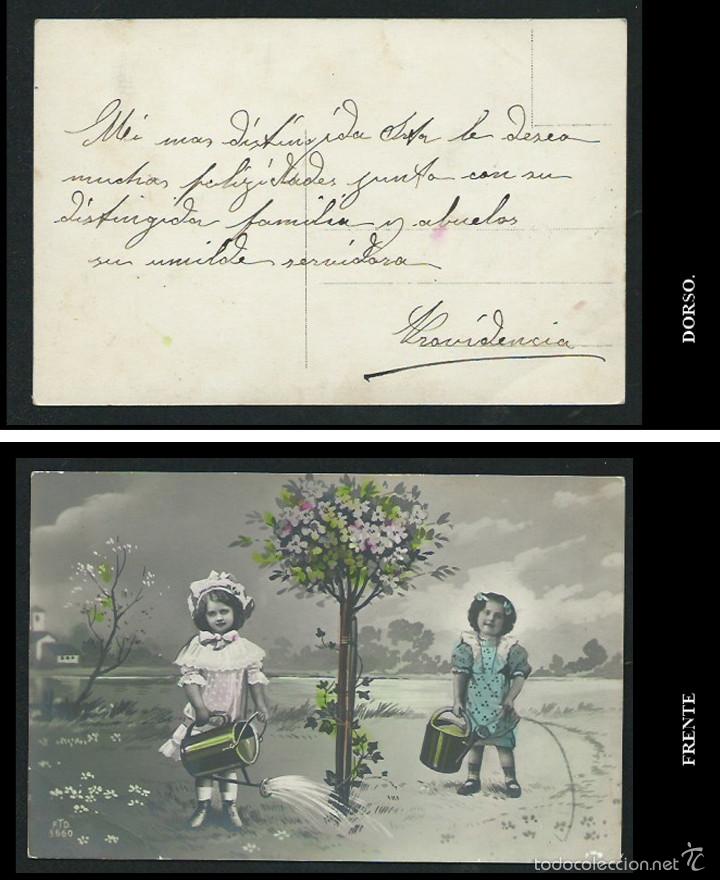 Mi mas distinguida Srta le deseo
muchas felizidades junto con su
distinguida familia y abuelos
su umilde servidora
Providencia
DORSO.
FRENTE
FTD.
3660
todocoleccion.net